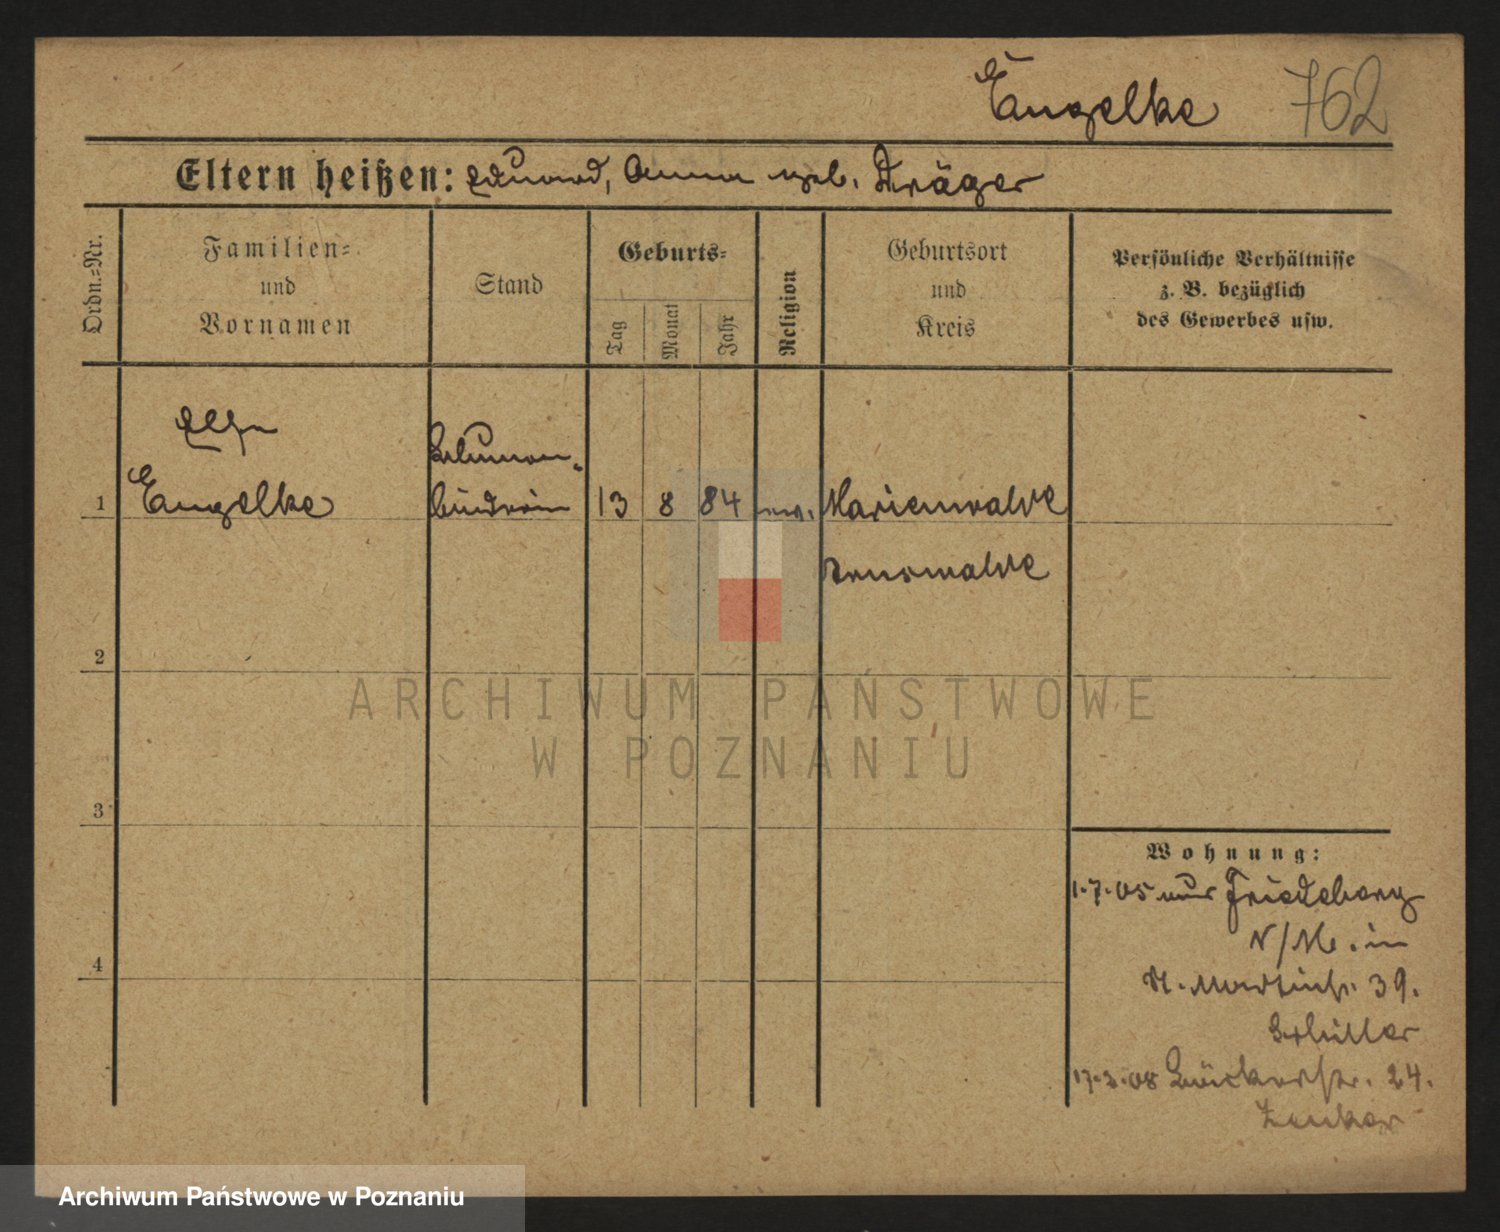 Engelke 762
Eltern heißen: Eduard, Anna geb. Dräger
Ordn.=Nr.
Familien=
und
Vornamen
Stand
Geburts=
Tag
Monat
Jahr
Religion
Geburtsort
und
Kreis
Persönliche Verhältnisse
z. B. bezüglich
des Gewerbes usw.
Blumen-
1 Engelke binderin 13 8 84 ev. Marienwalde
Arnswalde
2
3
4
Wohnung:
1.7.05 aus Friedeberg
N/M. in
St. Martinstr. 39.
Schiller
17.3.08 Bäckerstr. 24.
Zenker
ARCHIWUM PAŃSTWOWE
W POZNANIU
Archiwum Państwowe w Poznaniu